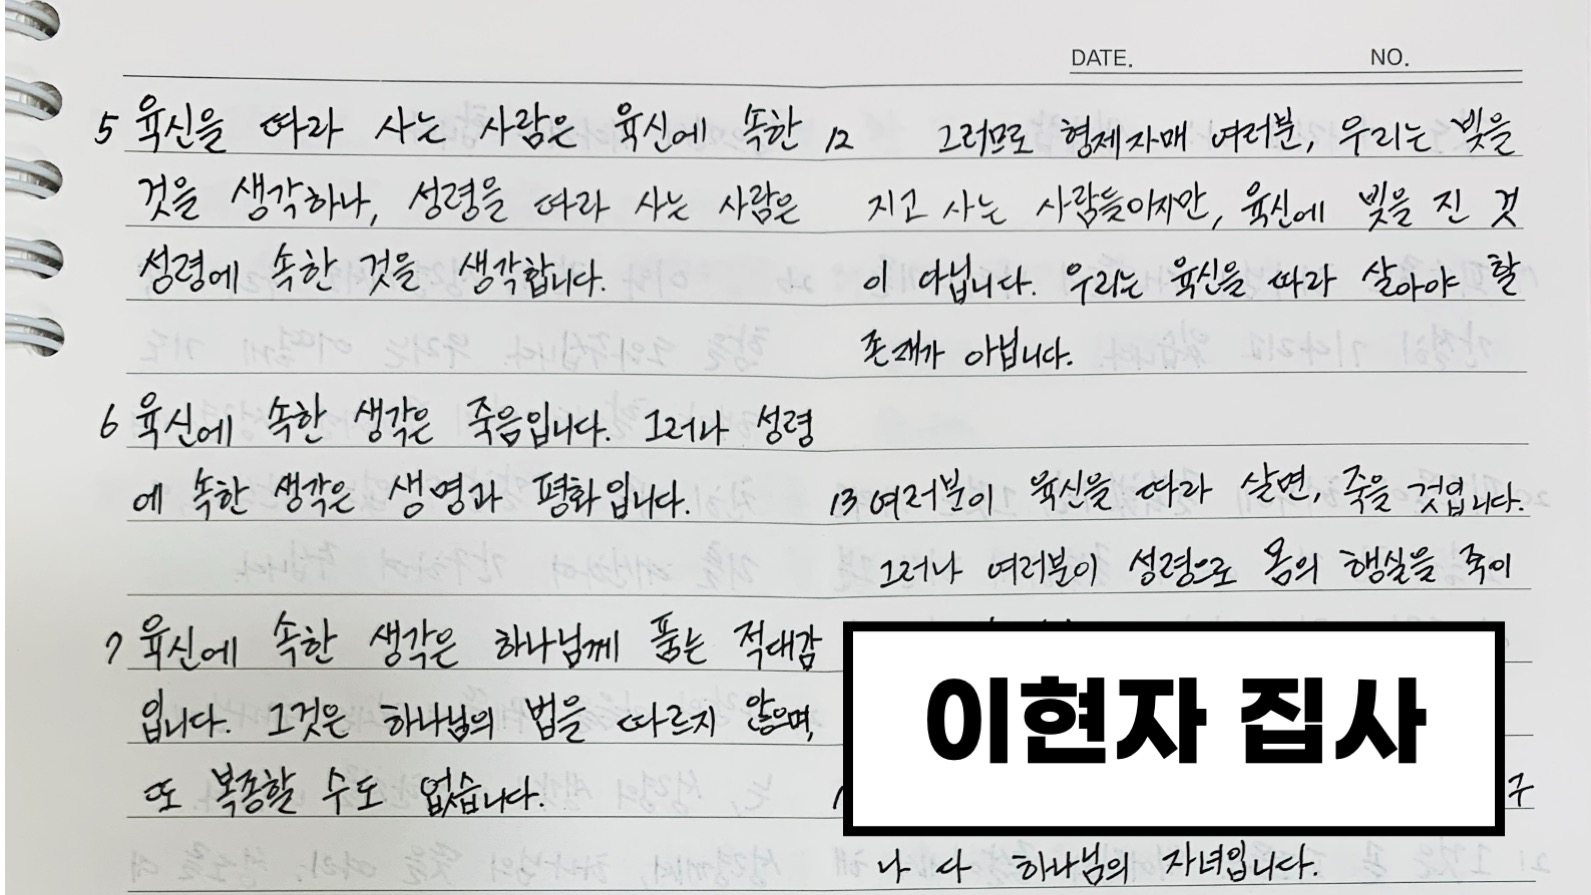 DATE. NO.
5 육신을 따라 사는 사람은 육신에 속한
것을 생각하나, 성령을 따라 사는 사람은
성령에 속한 것을 생각합니다.
6 육신에 속한 생각은 죽음입니다. 그러나 성령
에 속한 생각은 생명과 평화입니다.
7 육신에 속한 생각은 하나님께 품는 적대감
입니다. 그것은 하나님의 법을 따르지 않으며,
또 복종할 수도 없습니다.
12 그러므로 형제자매 여러분, 우리는 빚을
지고 사는 사람들이지만, 육신에 빚을 진 것
이 아닙니다. 우리는 육신을 따라 살아야 할
존재가 아닙니다.
13 여러분이 육신을 따라 살면, 죽을 것입니다.
그러나 여러분이 성령으로 몸의 행실을 죽이
이현자 집사
구
나 다 하나님의 자녀입니다.